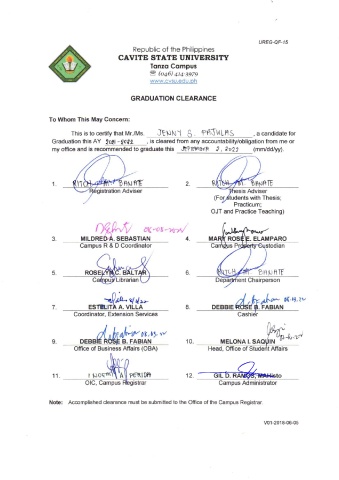 UREG-QF-15
Republic of the Philippines
CAVITE STATE UNIVERSITY
Tanza Campus
☎ (046) 414-3979
www.cvsu.edu.ph
GRADUATION CLEARANCE
To Whom This May Concern:
This is to certify that Mr./Ms. JENNY S. PAJULAS, a candidate for
Graduation this AY 2021-2022, is cleared from any accountability/obligation from me or
my office and is recommended to graduate this SEPTEMBER 2, 2022 (mm/dd/yy).
1. RITCH BANATE
Registration Adviser
2. RITCH BANATE
Thesis Adviser
(For students with Thesis;
Practicum;
OJT and Practice Teaching)
3. MILDRED A. SEBASTIAN
Campus R & D Coordinator
4. MARY ROSE E. ELAMPARO
Campus Property Custodian
5. ROSELYN C. BALTAR
Campus Librarian
6. RITCH BANATE
Department Chairperson
7. ESTELITA A. VILLA
Coordinator, Extension Services
8. DEBBIE ROSE B. FABIAN
Cashier
9. DEBBIE ROSE B. FABIAN
Office of Business Affairs (OBA)
10. MELONA I. SAQUIN
Head, Office of Student Affairs
11.
OIC, Campus Registrar
12. GIL D. RAMOS, MAHisto
Campus Administrator
Note: Accomplished clearance must be submitted to the Office of the Campus Registrar.
V01-2018-06-05